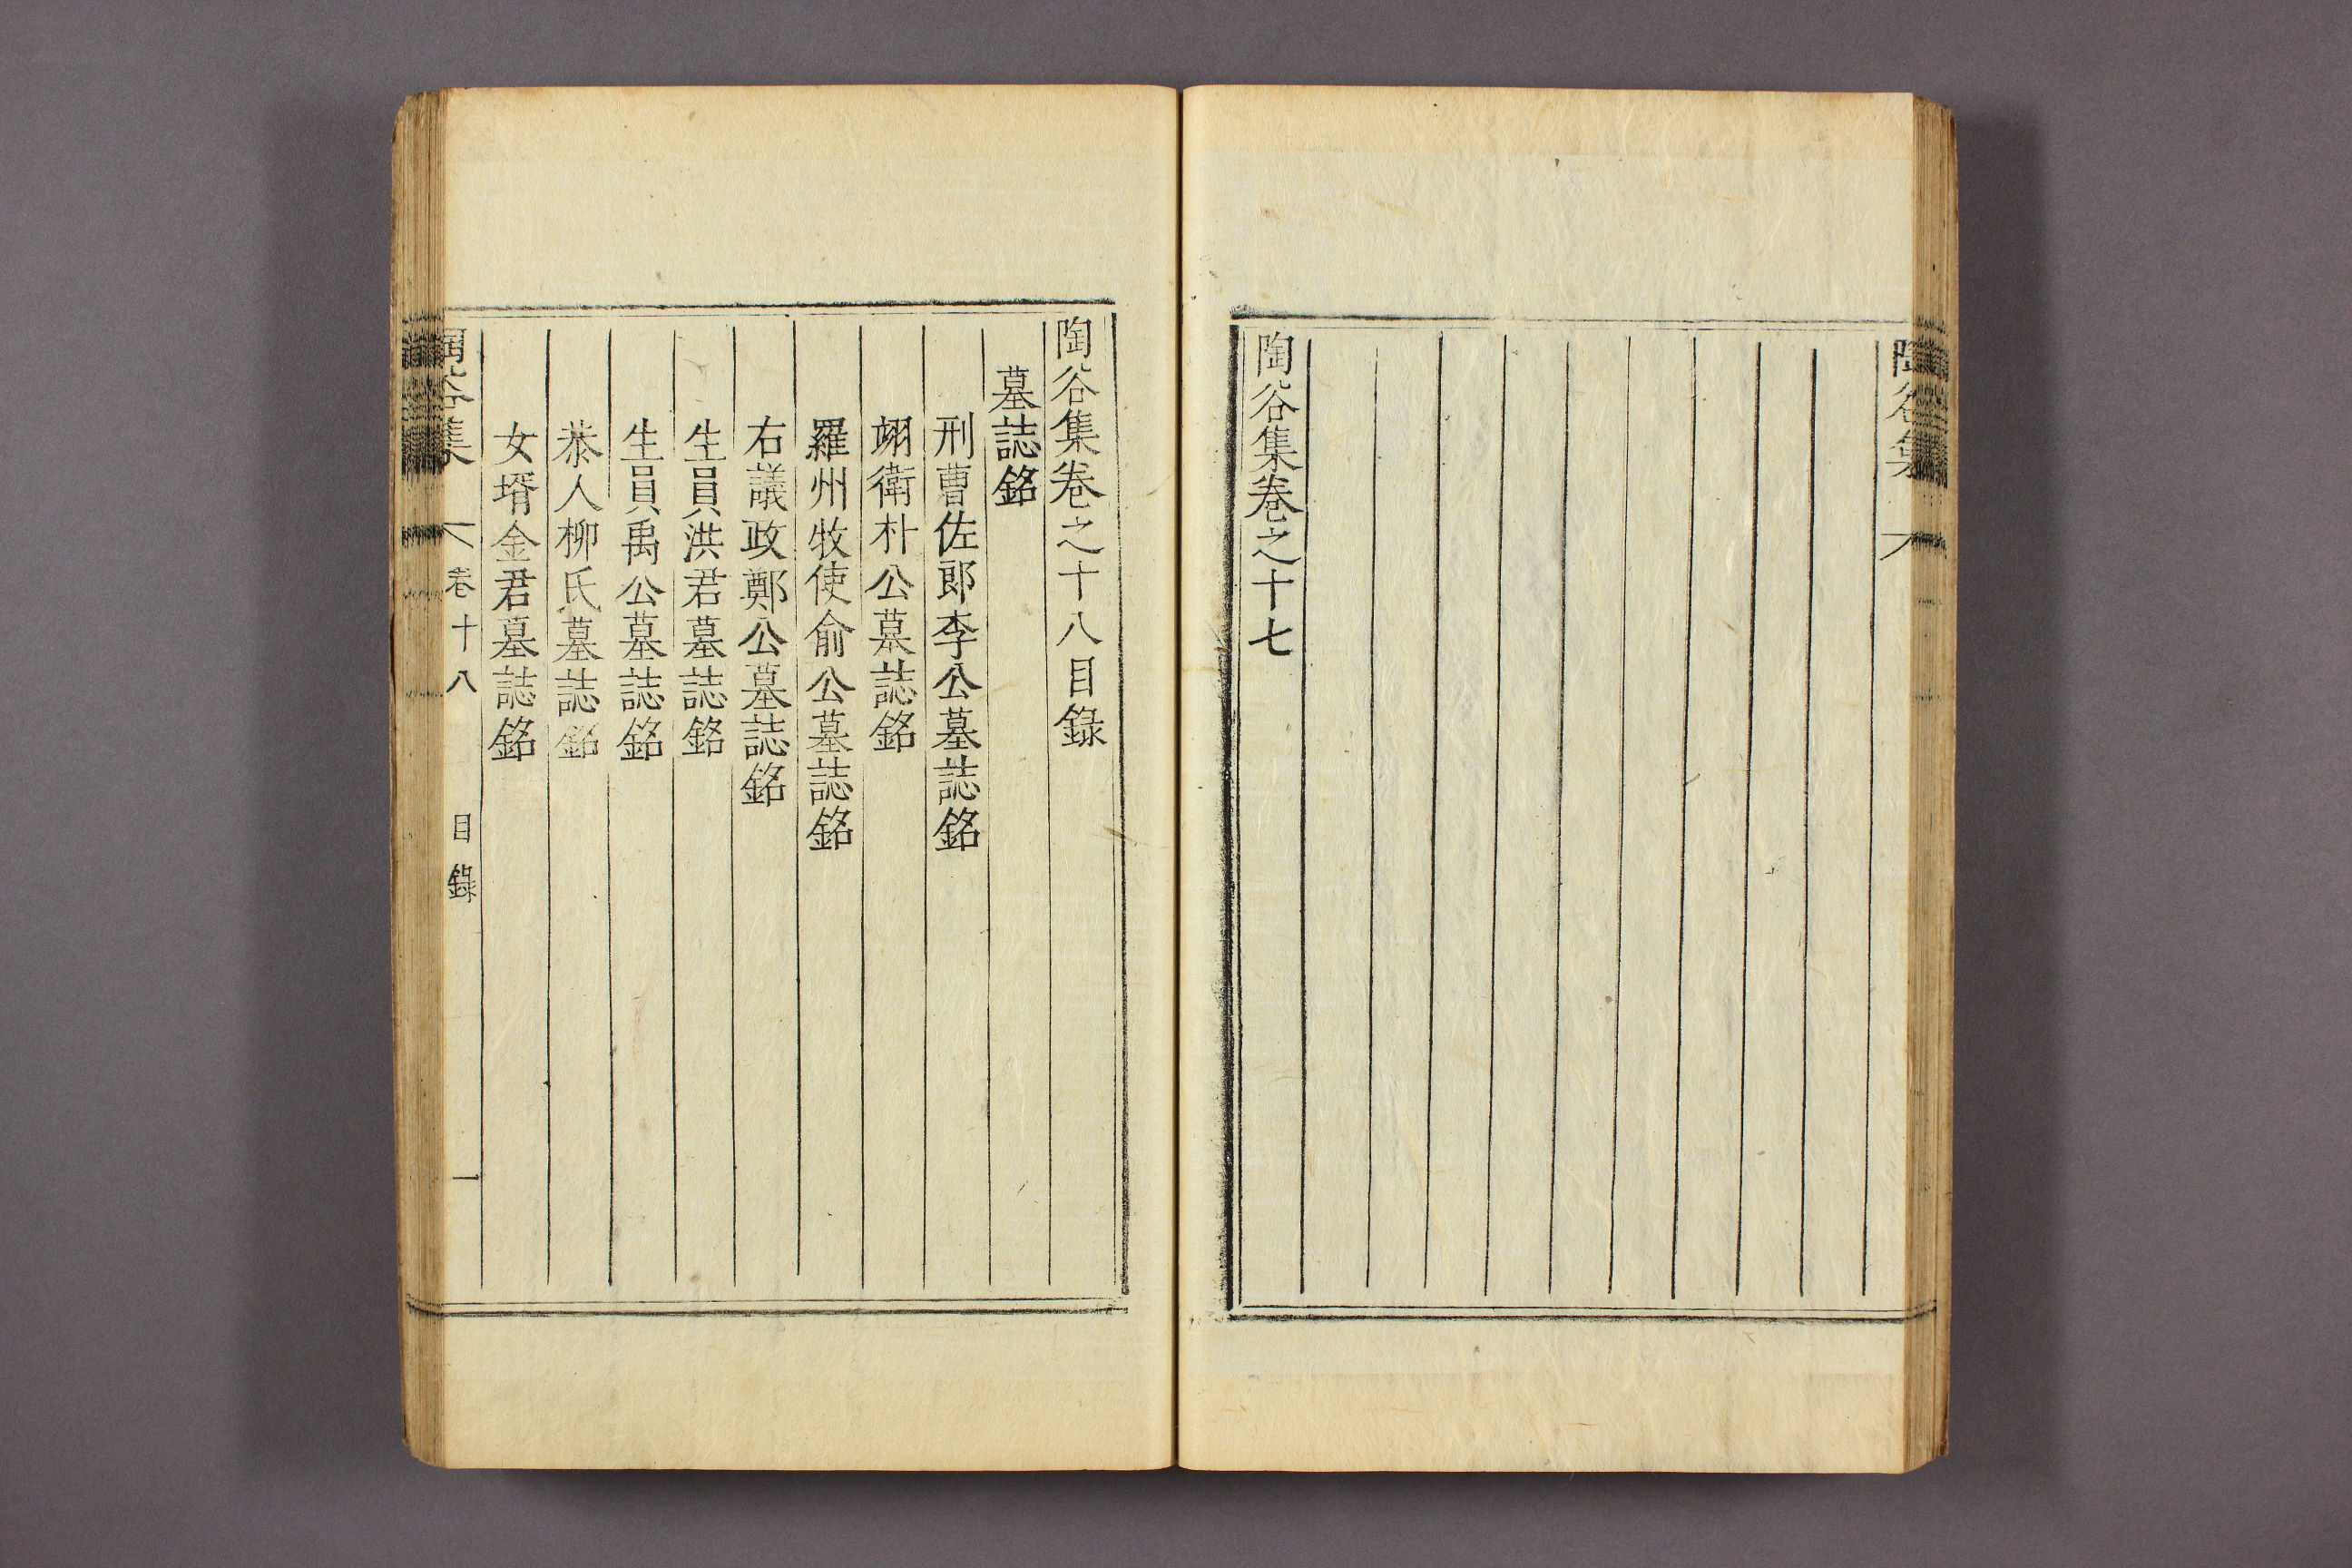 陶谷集
陶谷集卷之十七
陶谷集卷之十八目錄
墓誌銘
刑曹佐郎李公墓誌銘
翊衛朴公墓誌銘
羅州牧使俞公墓誌銘
右議政鄭公墓誌銘
生員洪君墓誌銘
生員禹公墓誌銘
恭人柳氏墓誌銘
女壻金君墓誌銘
陶谷集 卷十八 目錄 一